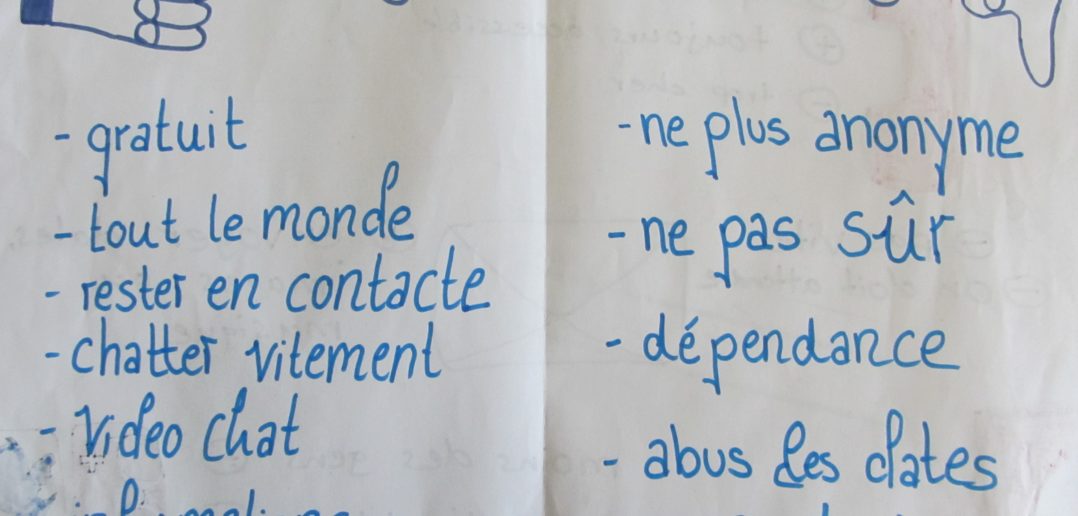 - gratuit
- tout le monde
- rester en contacte
- chatter vitement
- video chat
- ne plus anonyme
- ne pas sûr
- dépendance
- abus des dates